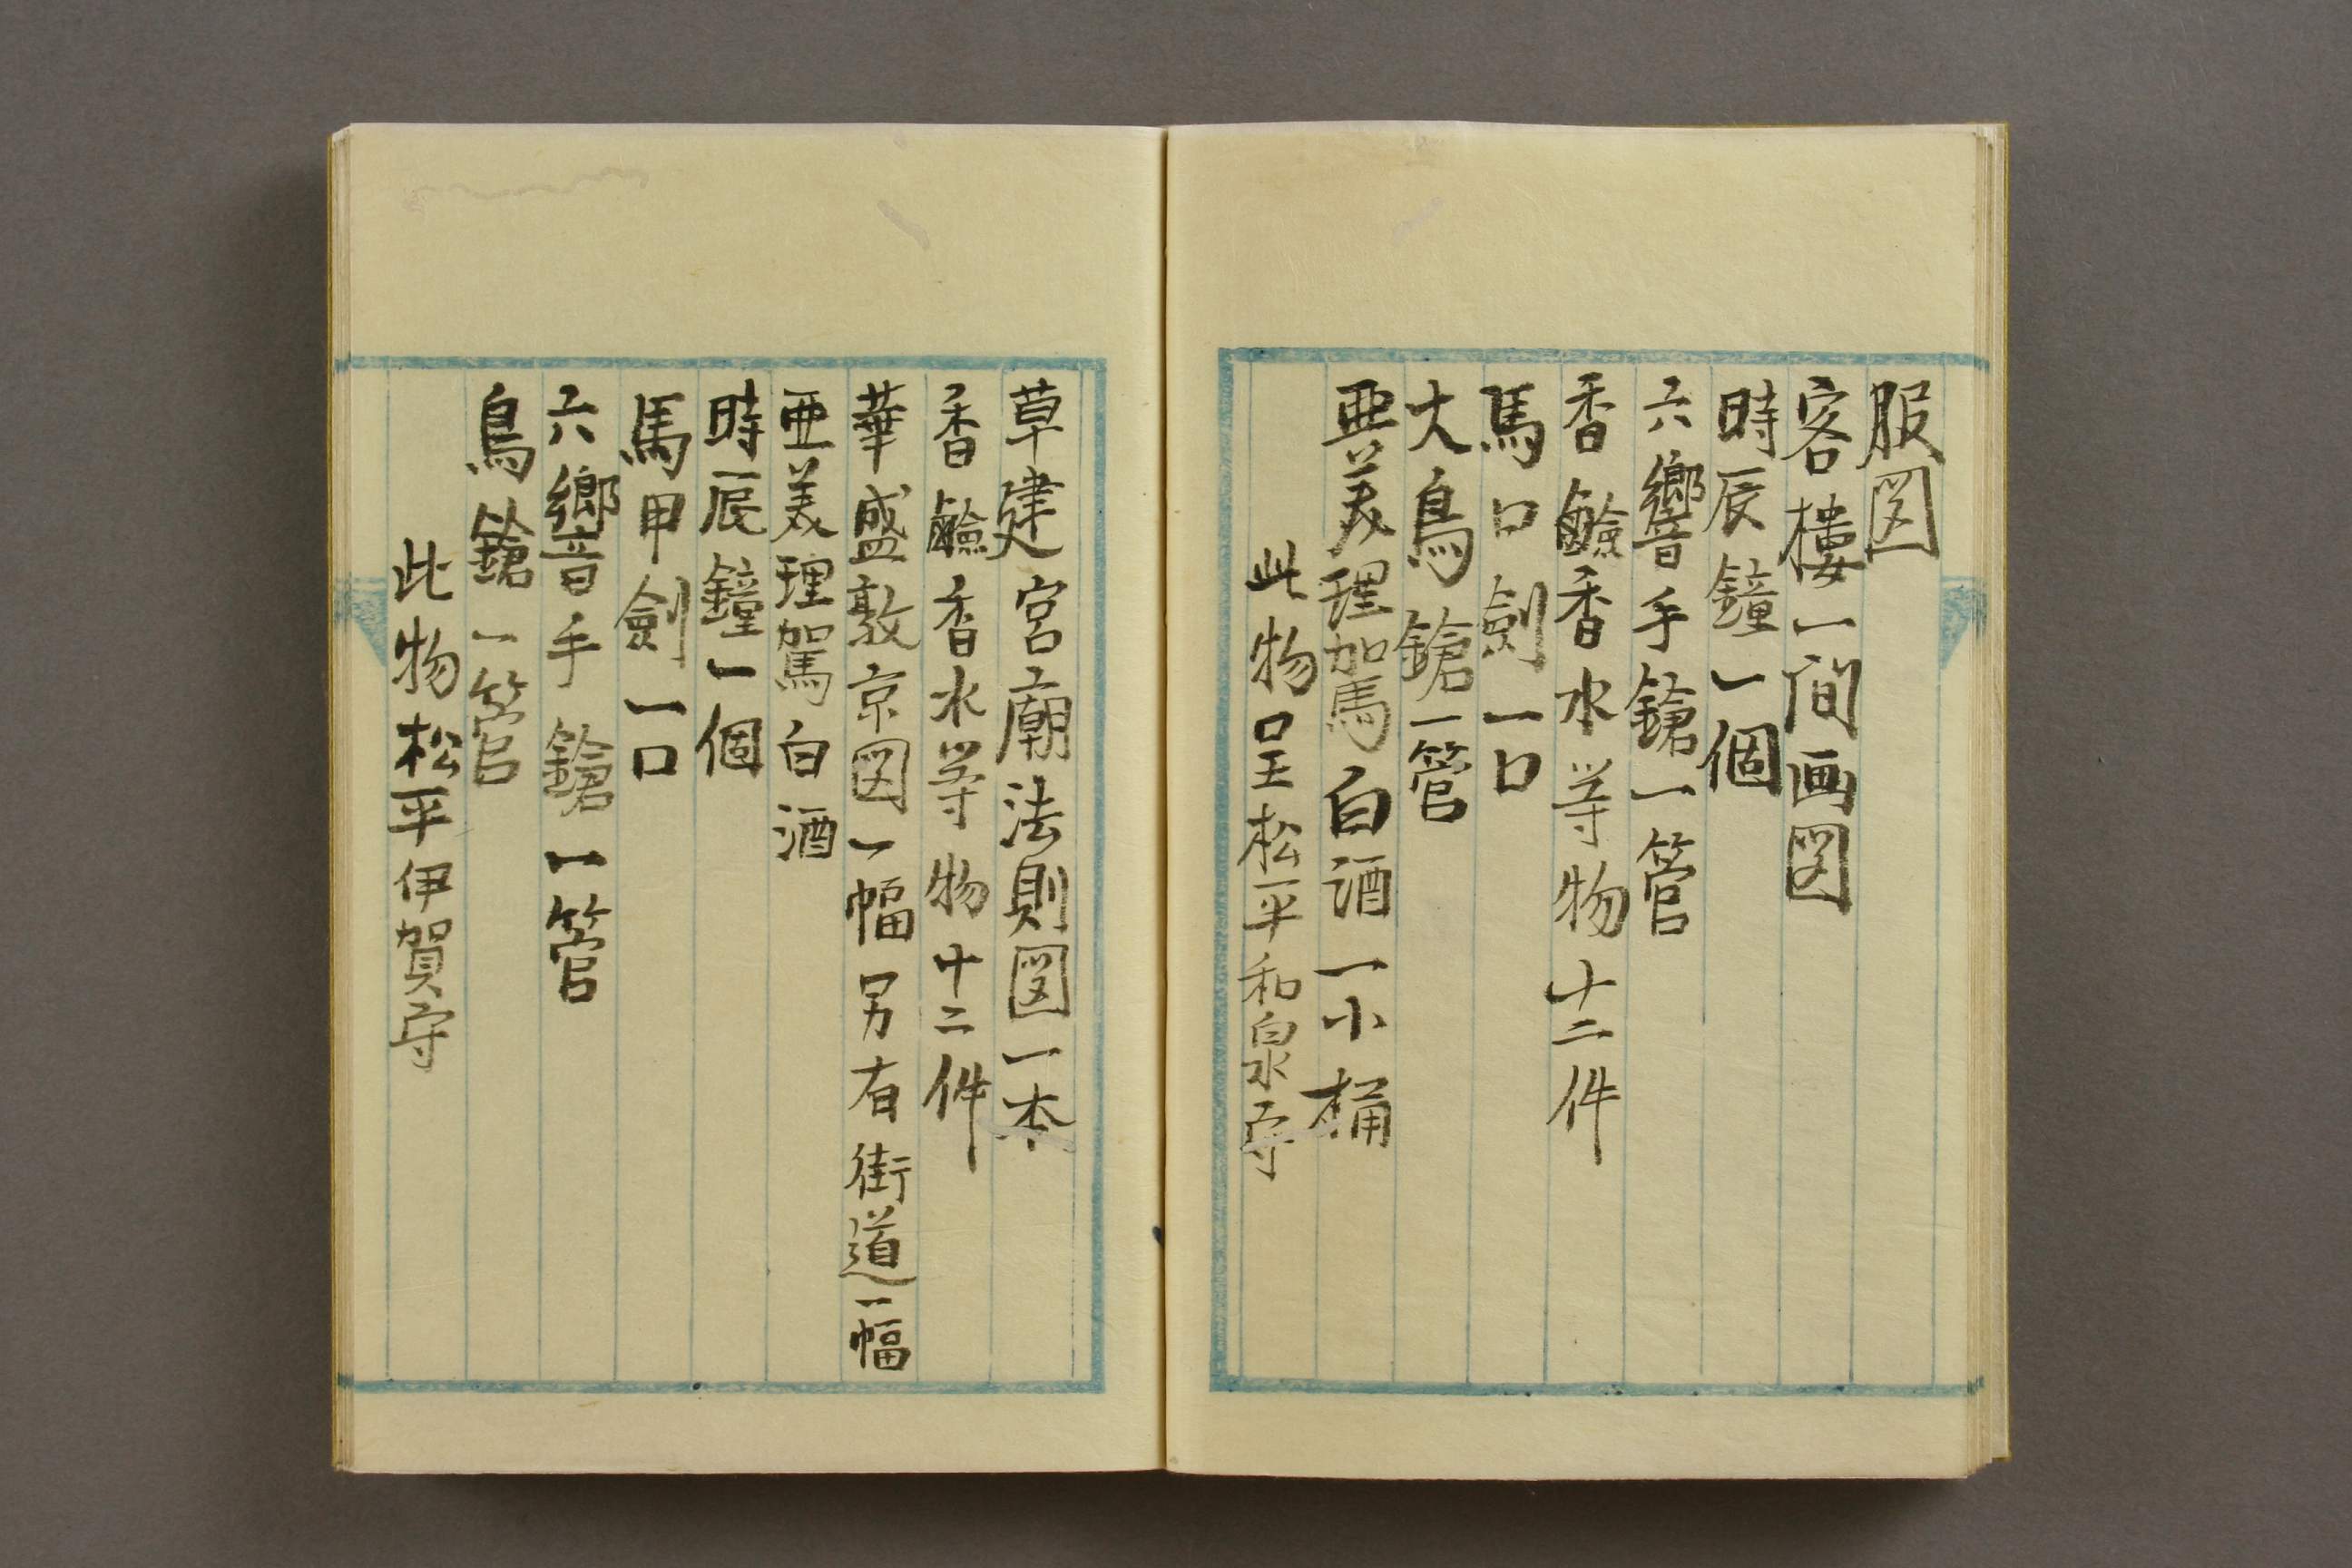 服図
客樓一間画図
時辰鐘一個
六響手鎗一管
香鹼香水等物十二件
馬口劍一口
大鳥鎗一管
亜美理駕白酒一小桶
此物呈松平和泉守
草建宮廟法則図一本
香鹼香水等物十二件
華盛敦京図一幅另有街道一幅
亜美理駕白酒
時辰鐘一個
馬甲劍一口
六響手鎗一管
鳥鎗一管
此物松平伊賀守